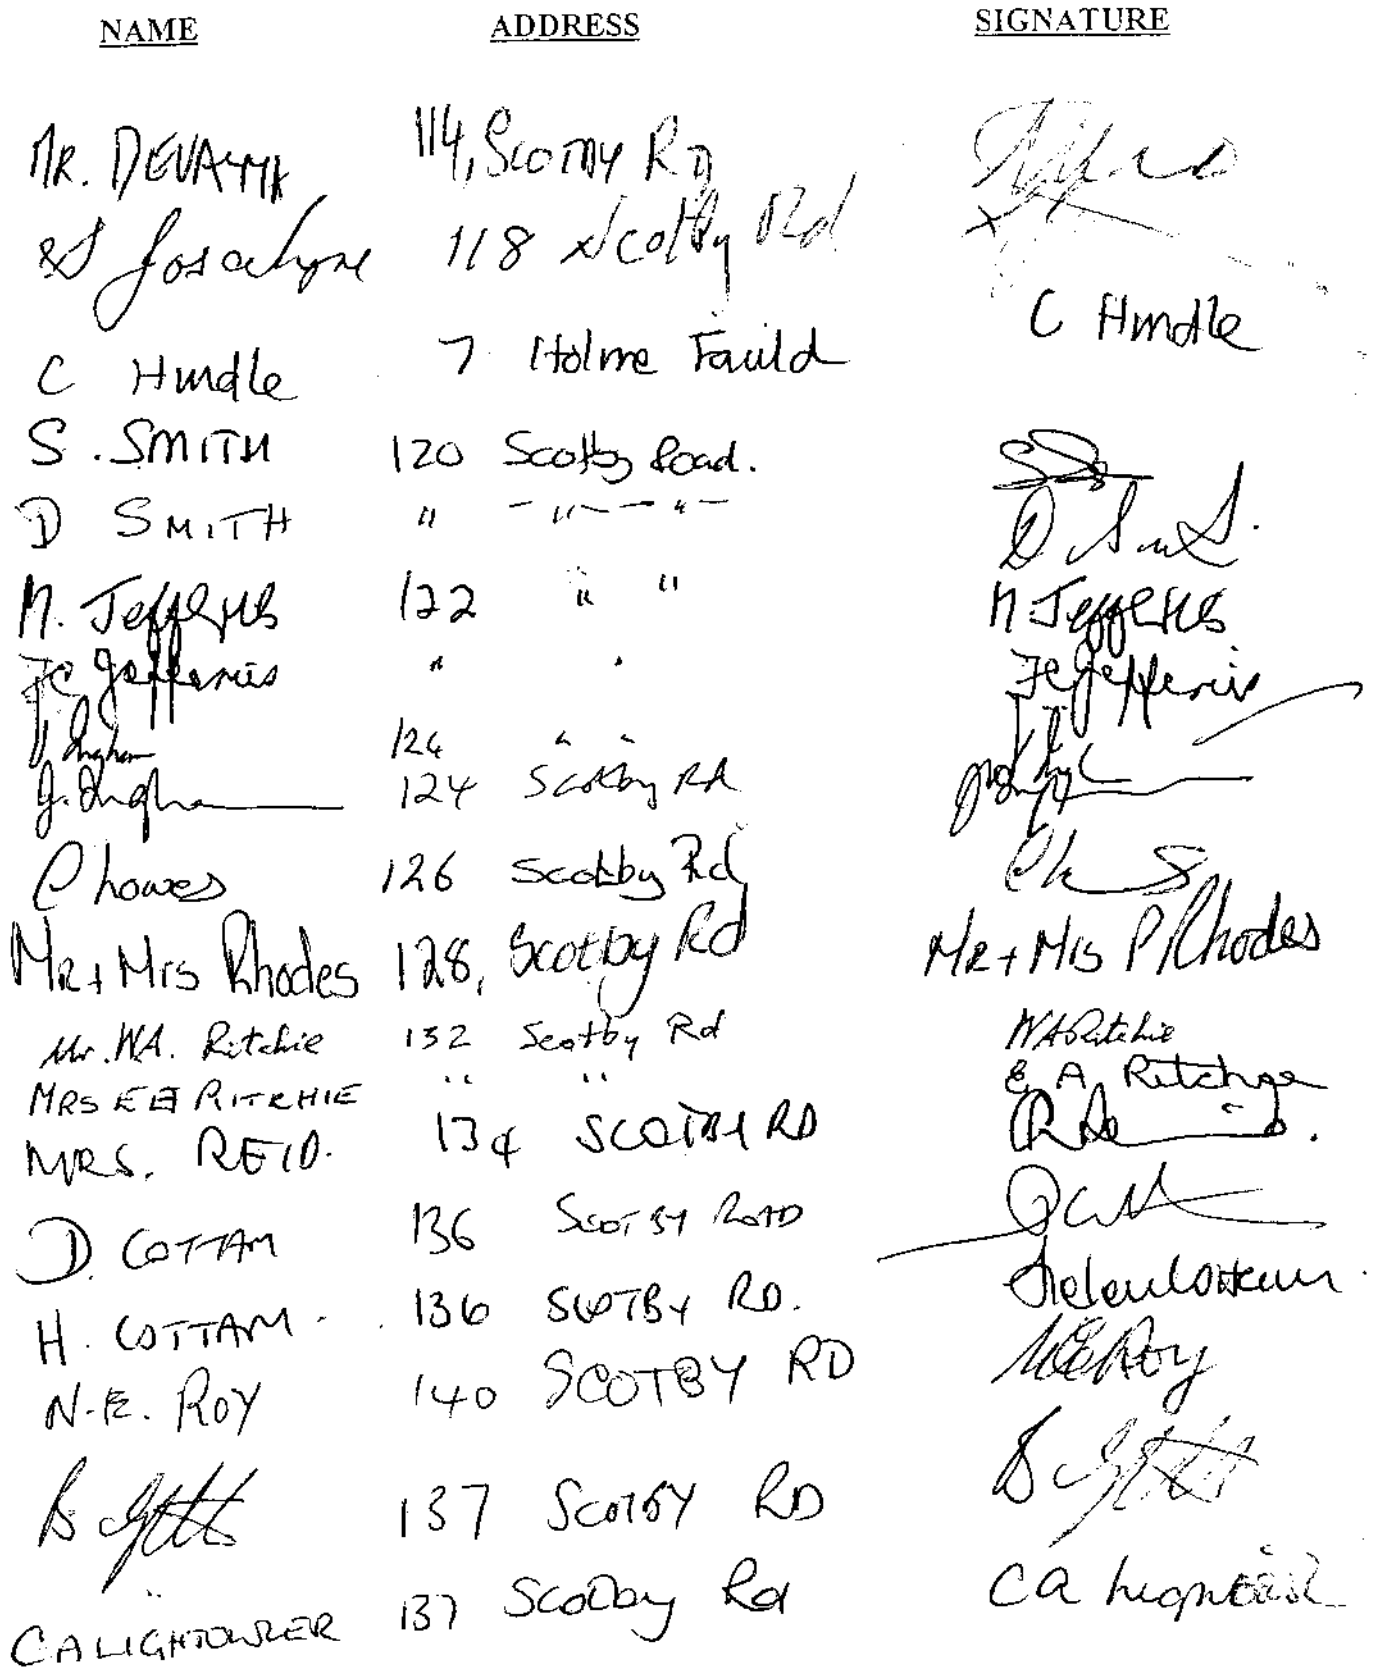 NAME ADDRESS SIGNATURE
MR. 114, SCOTBY RD
118 Scotby Rd
C Hindle 7 Holme Fauld C Hindle
S. SMITH 120 Scotby Road.
D SMITH " — " — " — D Smith.
M. Jefferies 122 " " M Jefferies
Jefferies " " Jefferies
Ingham 124 " "
J. Ingham 124 Scotby Rd
C howes 126 Scotby Rd
MR + Mrs Rhodes 128, Scotby Rd MR + Mrs P Rhodes
Mr. W.A. Ritchie 132 Scotby Rd WA Ritchie
MRS RITCHIE " " E A Ritchie
MRS. REID. 134 SCOTBY RD
D. COTTAM 136 SCOTBY ROAD
H. COTTAM. 136 SCOTBY RD. Helen Cottam.
N.E. ROY 140 SCOTBY RD NE Roy
B 137 SCOTBY RD B
C A LIGHTOWLER 137 Scotby Rd C A